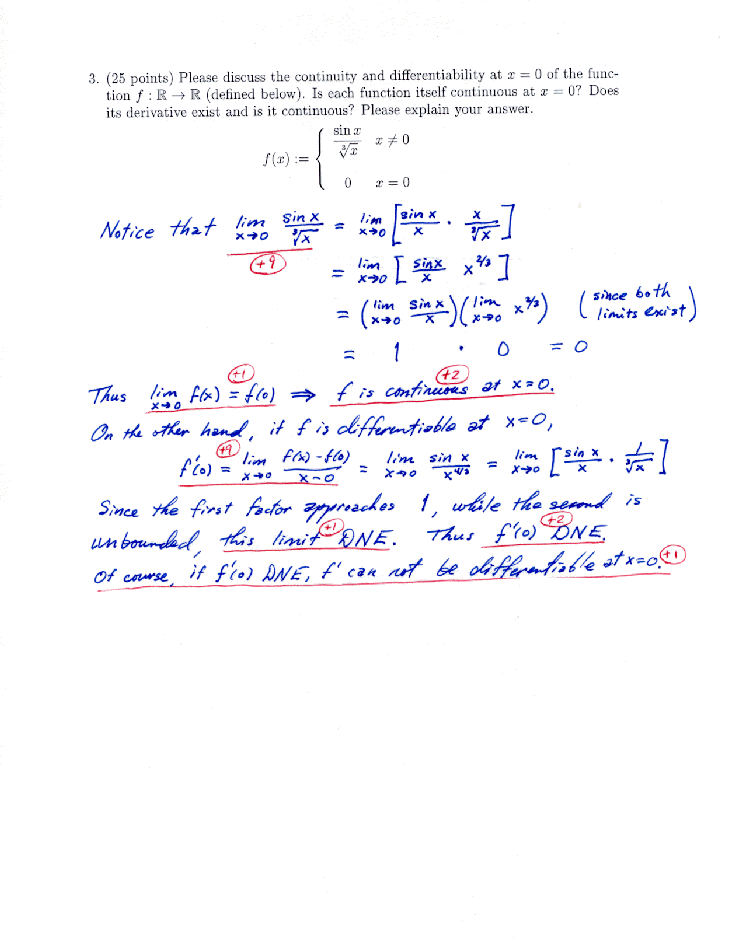 3. (25 points) Please discuss the continuity and differentiability at x = 0 of the func-
tion f : ℝ → ℝ (defined below). Is each function itself continuous at x = 0? Does
its derivative exist and is it continuous? Please explain your answer.
f(x) := { sin x / ∛x   x ≠ 0
0   x = 0
Notice that lim x→0 sin x / ∛x = lim x→0 [ sin x / x · x / ∛x ]
+9 = lim x→0 [ sin x / x x^2/3 ]
= ( lim x→0 sin x / x )( lim x→0 x^2/3 ) ( since both limits exist )
= 1 · 0 = 0
+1 +2
Thus lim x→0 f(x) = f(0) ⇒ f is continuous at x = 0.
On the other hand, if f is differentiable at x=0,
+9
f'(0) = lim x→0 f(x) - f(0) / x - 0 = lim x→0 sin x / x^4/3 = lim x→0 [ sin x / x · 1 / ∛x ]
Since the first factor approaches 1, while the second is
unbounded, this limit +1 DNE. Thus f'(0) +2 DNE.
Of course, if f'(0) DNE, f' can not be differentiable at x=0. +1